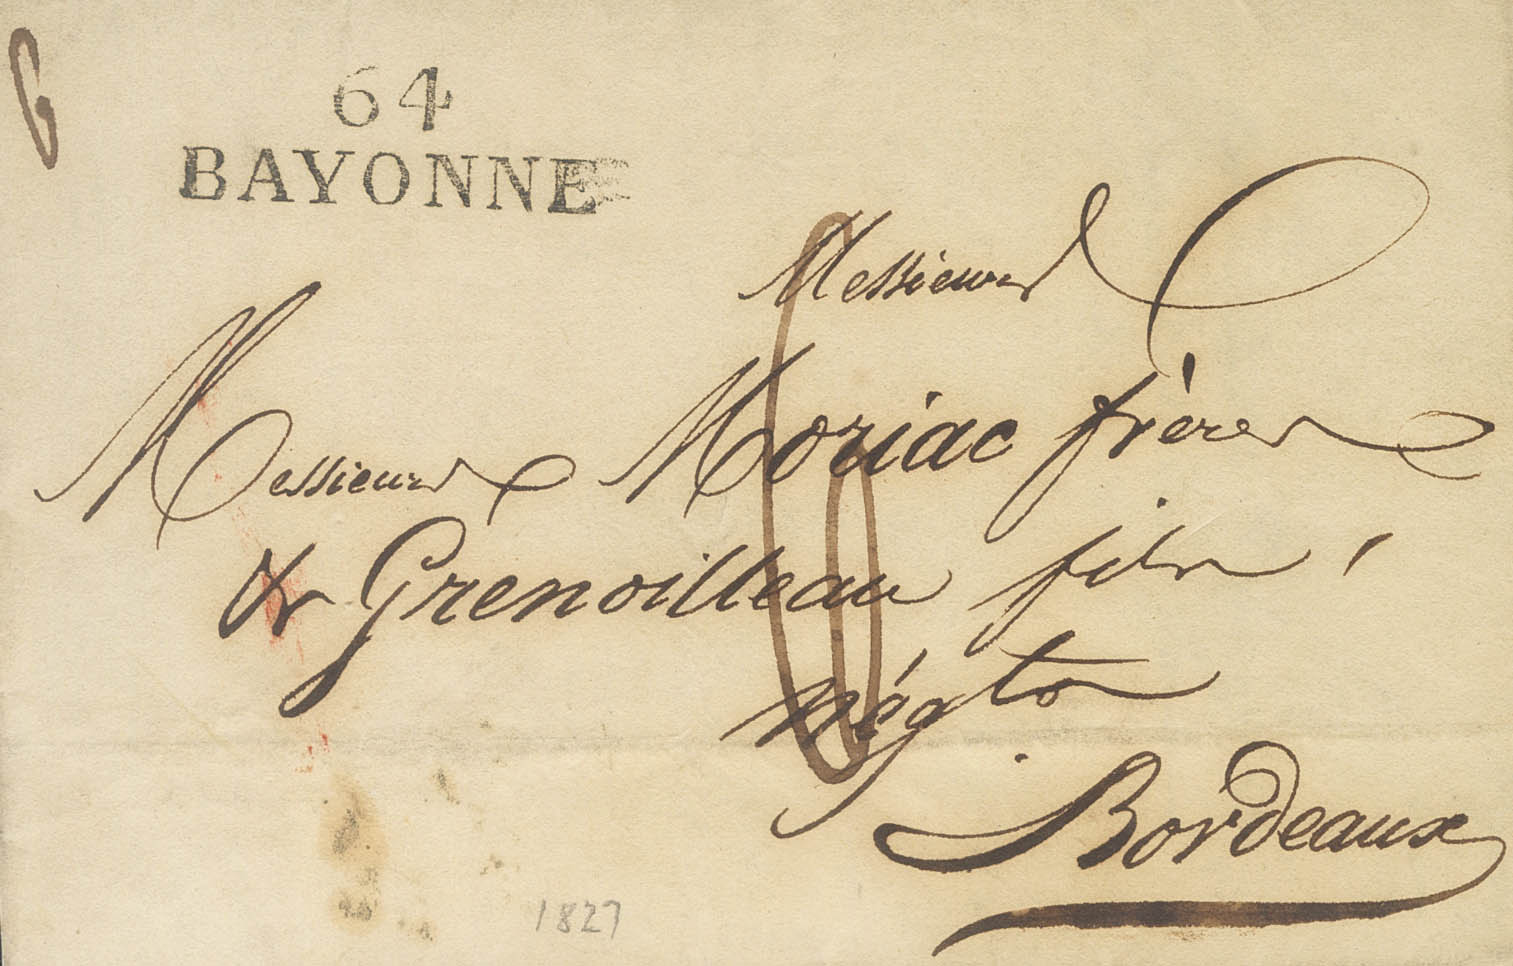 6
64
BAYONNE
Messieurs
Messieurs Moriac frères
& Grenoilleau fils,
négts
Bordeaux
1827